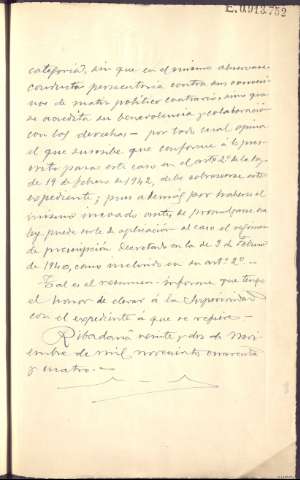 E.0913.752
categoría?, sin que en el mismo observase
conducta persecutoria contra sus conveci-
nos de matiz político contrario, sino que
se acredita su benevolencia y colaboración
con los derechas – por todo cual opina
el que suscribe que conforme á lo pre-
visto para este caso en el artº 2º de la ley
de 19 de febrero de 1942, debe sobreseerse este
expediente; pues además por haberse el
mismo incoado antes de promulgarse esa
ley puede serle de aplicación al caso el régimen
de prescripción decretado en la de 9 de Febrero
de 1940, como incluido en su artº 2º –
Tal es el resumen-informe que tengo
el honor de elevar á la Superioridad
con el expediente á que se refiere –
Ribadavia veinte y dos de Novi-
embre de mil novecientos cuarenta
y cuatro. –